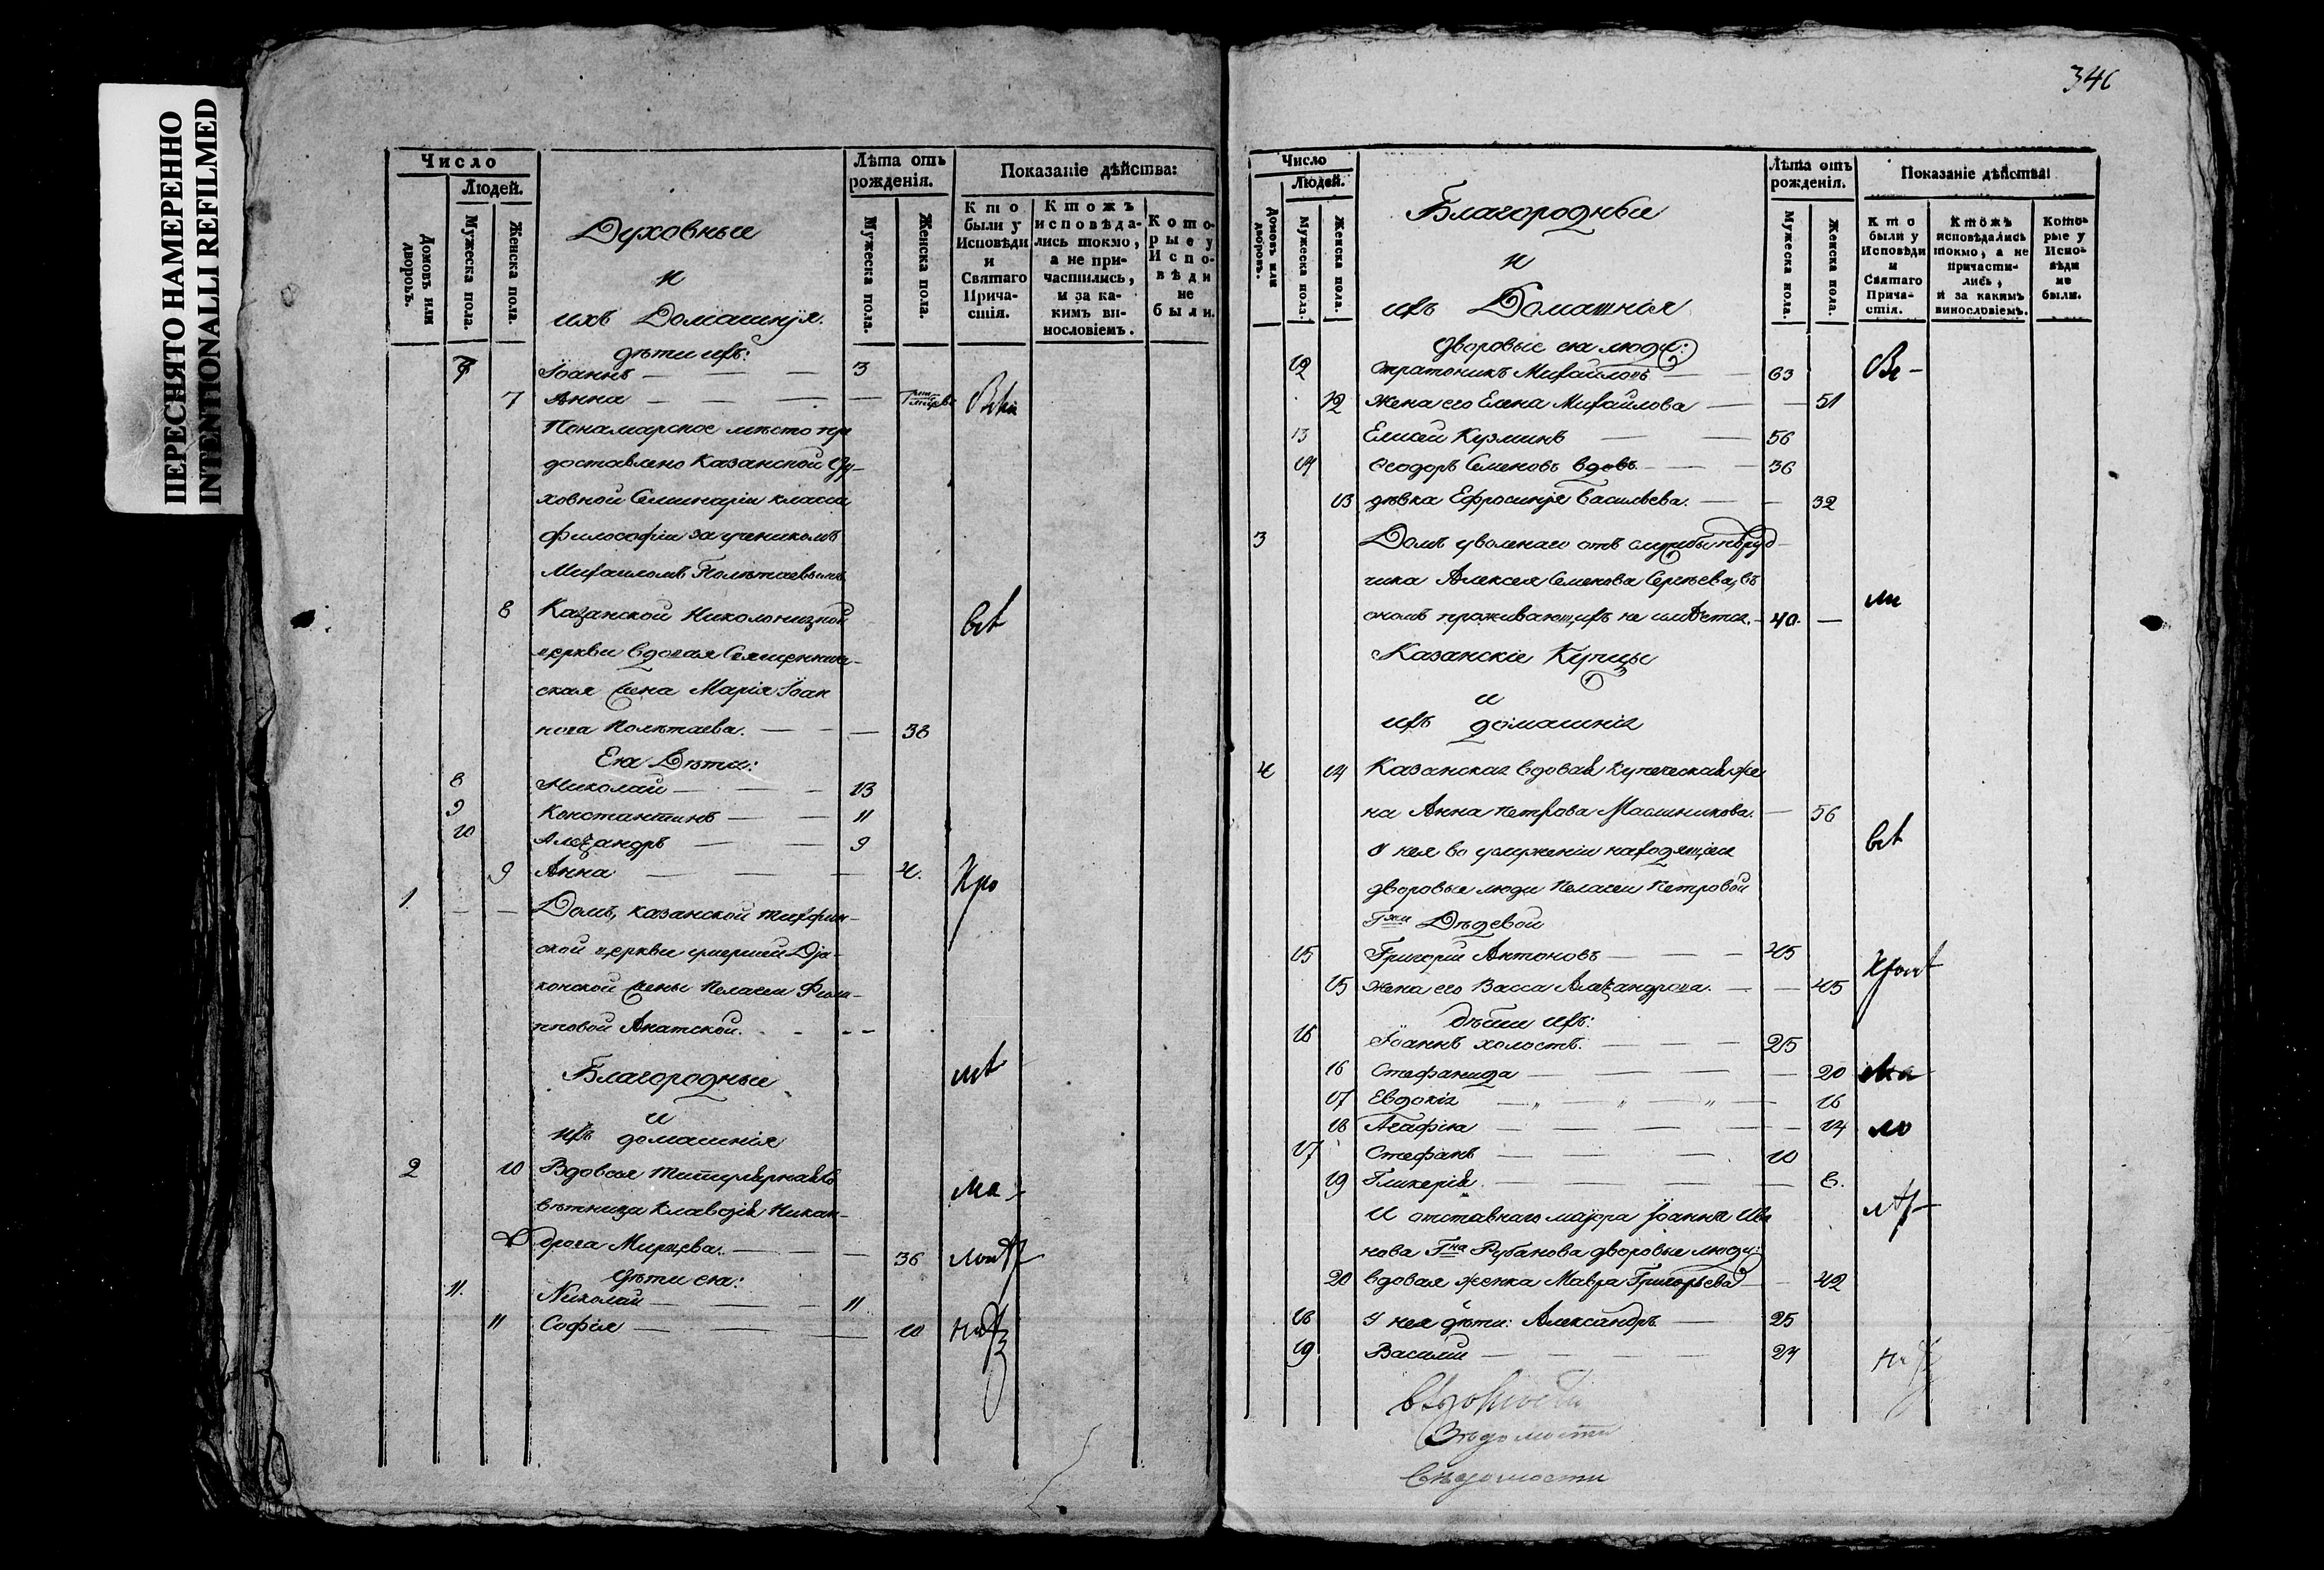 ПЕРЕСНЯТО НАМЕРЕННО
INTENTIONALLI REFILMED
Число
Людей.
Домовъ или дворовъ.
Мужеска пола.
Женска пола.
Духовные
и
ихъ Домашнія.
Лѣта отъ рожденія.
Мужеска пола.
Женска пола.
Показаніе дѣйства:
Кто были у Исповѣди и Святаго Причастія.
Ктожъ исповѣдались токмо, а не причастились, и за какимъ винословіемъ.
Которые у Исповѣди не были.
дѣти ихъ:
7 Іоаннъ — — — 3
7 Анна — — — —
Понамарское мѣсто пре
доставлено Казанской Ду-
ховной Семинаріи класса
философіи за ученикомъ
Михаиломъ Полѣтаевымъ
8 Казанской Николонизкой
церкви вдовая Священниче-
ская жена Марія Іоан
нова Полѣтаева. — — — 36
Ея Дѣти:
8 Николай — — — 13
9 Константинъ — — 11
10 Алеѯандръ — — 9
9 Анна — — — 4.
1. — — Домъ, казанской тихфин-
ской церкви умершей Діа-
конской жены Пелагеи Фили-
пповой Акатской.
Благородные
и
ихъ домашнія
2 10 Вдовая Титулярная Со
вѣтница Клавдія Никан-
дрова Мирцева. — — — 36
дѣти ея:
11. Николай — — — 11
11 Софія — — — 10
346
Число
Людей.
Домовъ или дворовъ.
Мужеска пола.
Женска пола.
Благородныи
и
ихъ Домашнія
Лѣта отъ рожденія.
Мужеска пола.
Женска пола.
Показаніе дѣйства:
Кто были у Исповѣди и Святаго Причастія.
Ктожъ исповѣдались токмо, а не причастились, и за какимъ винословіемъ.
Которые у Исповѣди не были.
дворовые ея люди:
12 Стратоникъ Михайловъ — — 63
12 жена его Елена Михайлова — — 51
13 Елисей Кузминъ — — 56
14 Ѳеодоръ Семеновъ вдовъ. — — 36
13 дѣвка Ефросинія Васильева. — — 32
3 Домъ уволенаго отъ службы поруд-
чика Алексея Семенова Сергѣева, въ
ономъ проживающихъ не имѣется. — 40. —
Казанскіе Купцы
и
ихъ домашнія
4 14 Казанская вдовая Купеческая Же
на Анна Петрова Масленикова. — 56
У нея во услуженіи находящіеся
дворовые люди Пелагеи Петровой
Гжи Дѣдевой
15 Григорій Антоновъ — — — 45
15 Жена его Васса Алеѯандрова. — — 45
дѣти ихъ:
16 Іоаннъ холостъ. — — — 25
16 Стефанида — — — — 20
17 Евдокія — „ — „ — „ — 16
18 Агафія — — — — 14
17 Стефанъ — — — 10
19 Гликерія — — — — 8.
И отставнаго маіора Іоанна Ива
нова Гна Рубанова дворовые люди:
20 вдовая женка Мавра Григорьева — 42
18 У нея дѣти: Александръ — 25
19 Василій — — — — 24
Вѣдомости
Вѣдомости